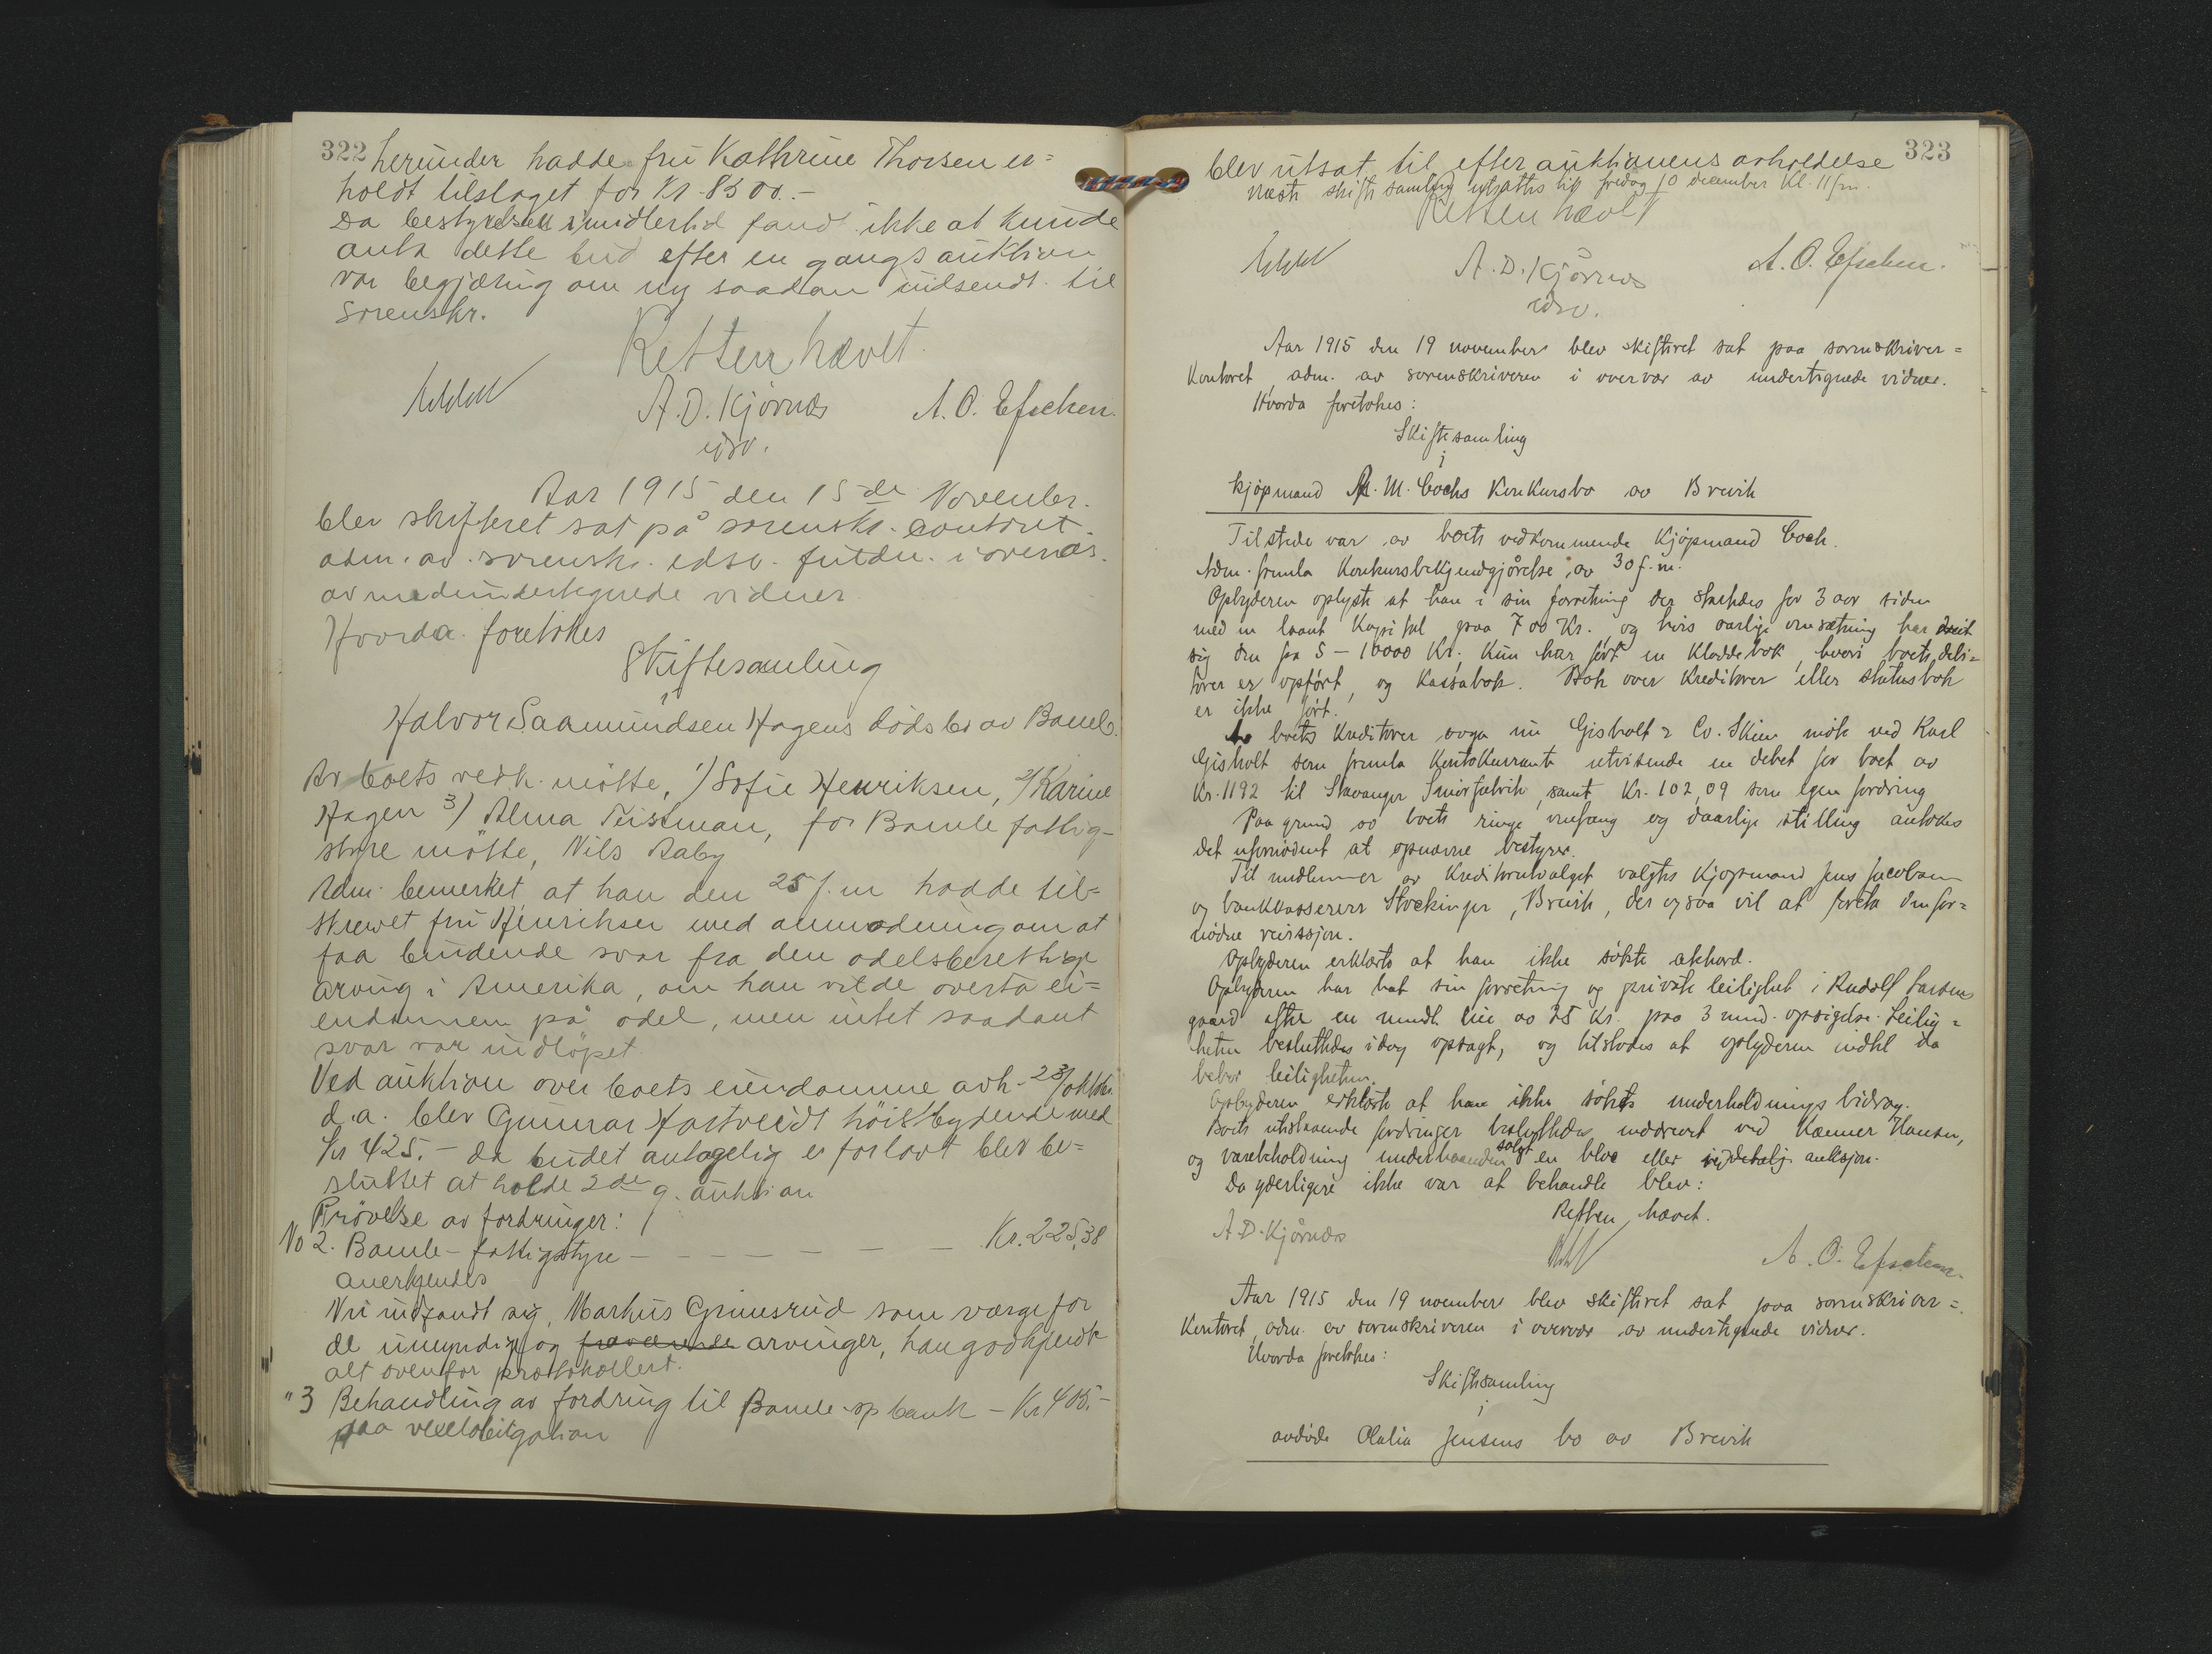 322
herunder hadde fru Kathrine Thorsen er=
holdt tilslaget for Kr. 8500.-
Da bestyrelsen imidlertid fandt ikke at kunde
anta dette bud efter en gangs auktion
var begjæring om ny saadan indsendt til
sorenskr.
Retten hævet
A. D. Kjörnæs A. O. Efschen.
edsv.
Aar 1915 den 15de November.
blev skifteret sat på sorenskr. contoret
adm. av sorenskr. edsv. fuldm. i overvær
av medundertegnede vidner
Hvorda foretokes
Skiftesamling
i
Halvor Saamundsen Hagens dødsbo av Bamle.
Av boets vedk. mötte, 1/ Sofie Henriksen, 2/ Karine
Hagen 3/ Alma Teisman, for Bamle fattig-
styre mötte, Nils Aaby
Adm. bemerket at han den 25 f. m hadde til=
skrevet fru Henriksen med anmodning om at
faa bindende svar fra den odelsberettige
arving i Amerika, om han vilde overta ei=
endommen på odel, men intet saadant
svar var indlöpet
Ved auktion over boets eiendomme avh. 23/oktbr.
d.a. blev Gunnar Hastveidt höistbydende med
Kr 425.- da budet antagelig er for lavt blev be=
sluttet at holde 2de g. auktion
Prövelse av fordringer:
No 2. Bamle fattigstyre - - - - - - - Kr. 225,38
anerkjendes
Nu indfandt sig, Markus Grinsrud som værge for
de umyndige og fraværende arvinger, han godkjendte
alt ovenfor protokollert.
" 3 Behandling av fordring til Bamle sp bank - Kr 405.-
paa vexelobligation
323
blev utsat til efter auktionens avholdelse
næste skiftesamling utsattes til fredag 10 december kl. 11 fm.
Retten hævet
A. D. Kjörnæs A. O. Efschen.
edsv.
Aar 1915 den 19 november blev skifteret sat paa sorenskriver=
kontoret, adm. av sorenskriveren i overvær av undertegnede vidner.
Hvorda foretokes:
Skiftesamling
i
kjøpmand M. Cochs konkursbo av Brevik
Tilstede var av boets vedkommende kjøpmand Coch.
Adm. fremla konkursbekjendtgjörelse av 30 f. m.
Opbyderen oplyste at han i sin forretning der startedes for 3 aar siden
med en laant kapital paa 700 kr. og hvis aarlige omsætning har dreiet
sig om fra 5 - 10000 kr. kun har fört en kladdebok, hvori boets debi=
torer er opfört, og kassabok. Bok over kreditorer eller statusbok
er ikke fört.
Av boets kreditorer ovga nu Gisholt & Co. Skien möte ved Karl
Gisholt som fremla kontokurant utvisende en debet for boet av
Kr. 1192 til Stavanger Smörfabrik, samt Kr. 102,09 som egen fordring
Paa grund av boets ringe omfang og daarlige stilling antokes
det ufornödent at opnævne bestyrer.
Til medlemmer av kreditorutvalget valgtes kjøpmand Jens Jacobsen
og bankkasserer Stockinger, Brevik, der ogsaa vil at foreta den for=
nödne revisjon.
Opbyderen erklærte at han ikke sökte akkord.
Opbyderen har hat sin forretning og private leilighet i Rudolf Larsens
gaard efter en mndl. leie av 25 kr. paa 3 mnd. opsigelse. Leilig=
heten besluttedes idag opsagt, og tilstodes at opbyderen indtil da
bebor leiligheten.
Opbyderen erklærte at han ikke sökte underholdningsbidrag.
Boets utestaaende fordringer besluttedes inddrevet ved kæmner Hansen,
og varebeholdning underhaanden solgt en bloc eller ved detalj auksjon.
Da yderligere ikke var at behandle blev:
Retten hævet.
A D. Kjörnæs
A. O. Efschen.
Aar 1915 den 19 november blev skifteret sat paa sorenskriver=
kontoret, adm. av sorenskriveren i overvær av undertegnede vidner.
Hvorda foretokes:
Skiftesamling
i
avdöde Olalia Jensens bo av Brevik